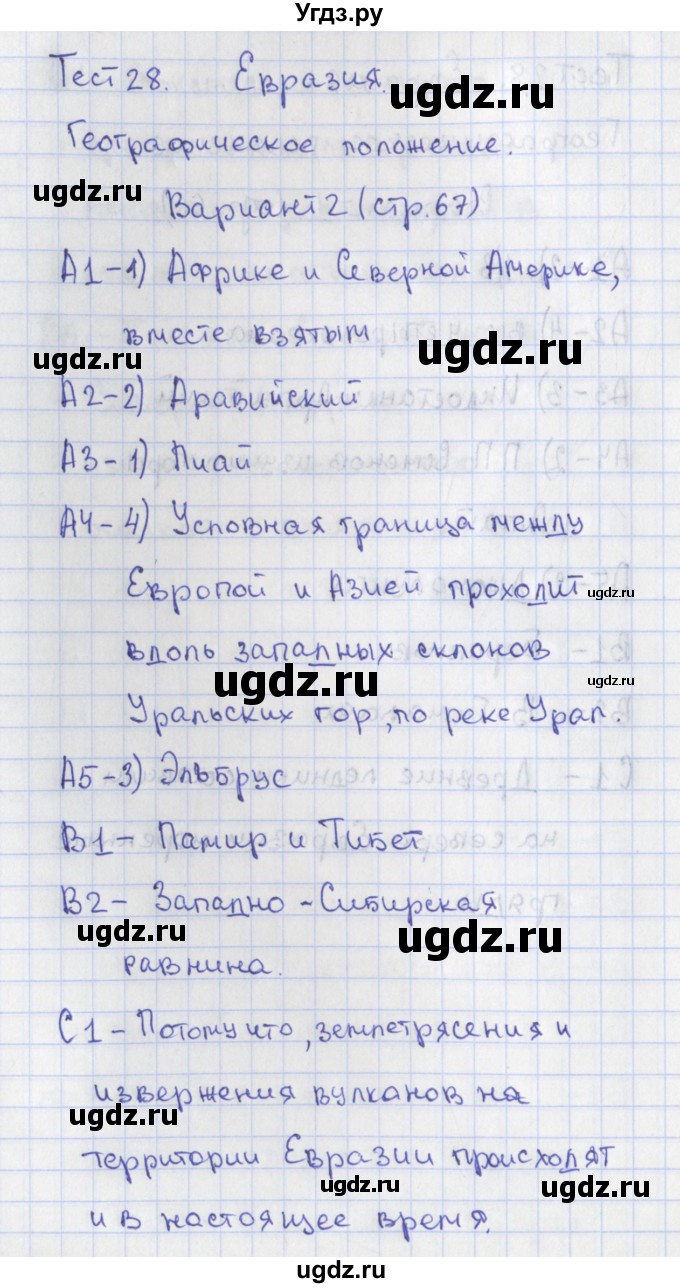 Угдз.ру
Тест 28. Евразия.
ugdz.ru
Географическое положение.
ugdz.ru
Вариант 2 (стр.67)
А1-1) Африке и Северной Америке,
вместе взятым
ugdz.ru
ugdz.ru
А2-2) Аравийский
А3-1) Пиай
А4-4) Условная граница между
Европой и Азией проходит
ugdz.ru
вдоль западных склонов
ugdz.ru
ugdz.ru
Уральских гор, по реке Урал.
А5-3) Эльбрус
В1- Памир и Тибет
В2- Западно-Сибирская
ugdz.ru
ugdz.ru
равнина.
С1-Потому что, землетрясения и
извержения вулканов на
ugdz.ru
территории Евразии происходят
ugdz.ru
ugdz.ru
и в настоящее время.
ugdz.ru